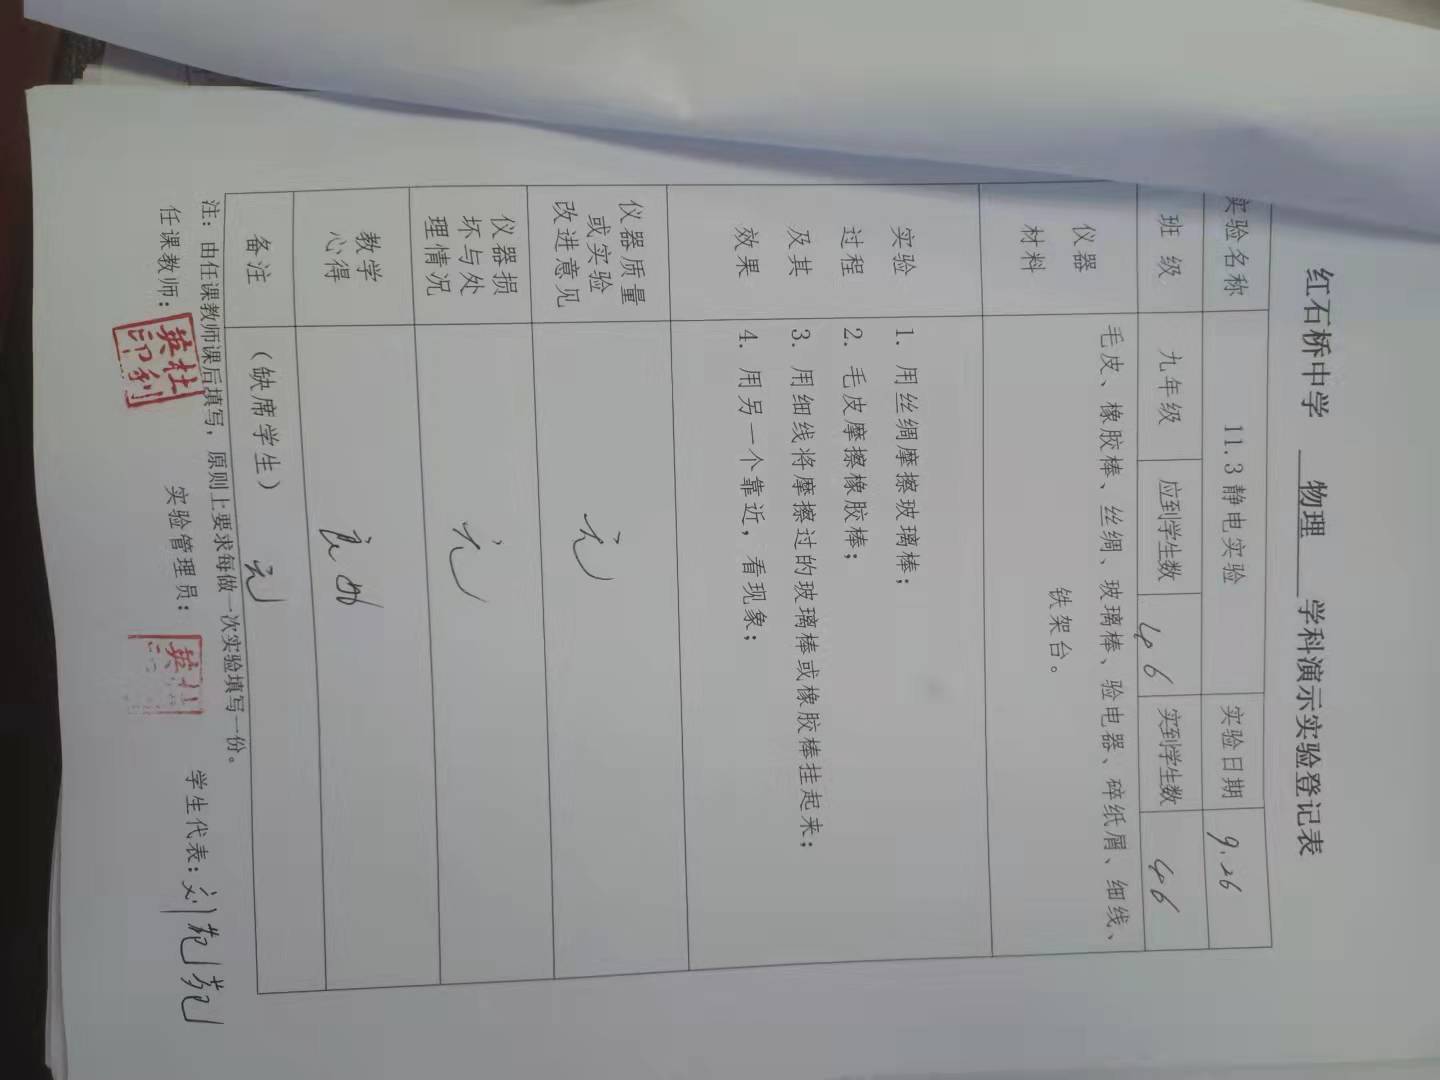 红石桥中学 物理 学科演示实验登记表
实验名称 11.3静电实验 实验日期 9.26
班 级 九年级 应到学生数 46 实到学生数 46
仪器
材料
毛皮、橡胶棒、丝绸、玻璃棒、验电器、碎纸屑、细线、
铁架台。
实验
过程
及其
效果
1. 用丝绸摩擦玻璃棒；
2. 毛皮摩擦橡胶棒；
3. 用细线将摩擦过的玻璃棒或橡胶棒挂起来；
4. 用另一个靠近，看现象；
仪器质量
或实验
改进意见
无
仪器损
坏与处
理情况
无
教学
心得
良好
备注 （缺席学生） 无
注：由任课教师课后填写，原则上要求每做一次实验填写一份。
任课教师： 实验管理员： 学生代表：刘苑苑
杜
英
利
印
杜
英